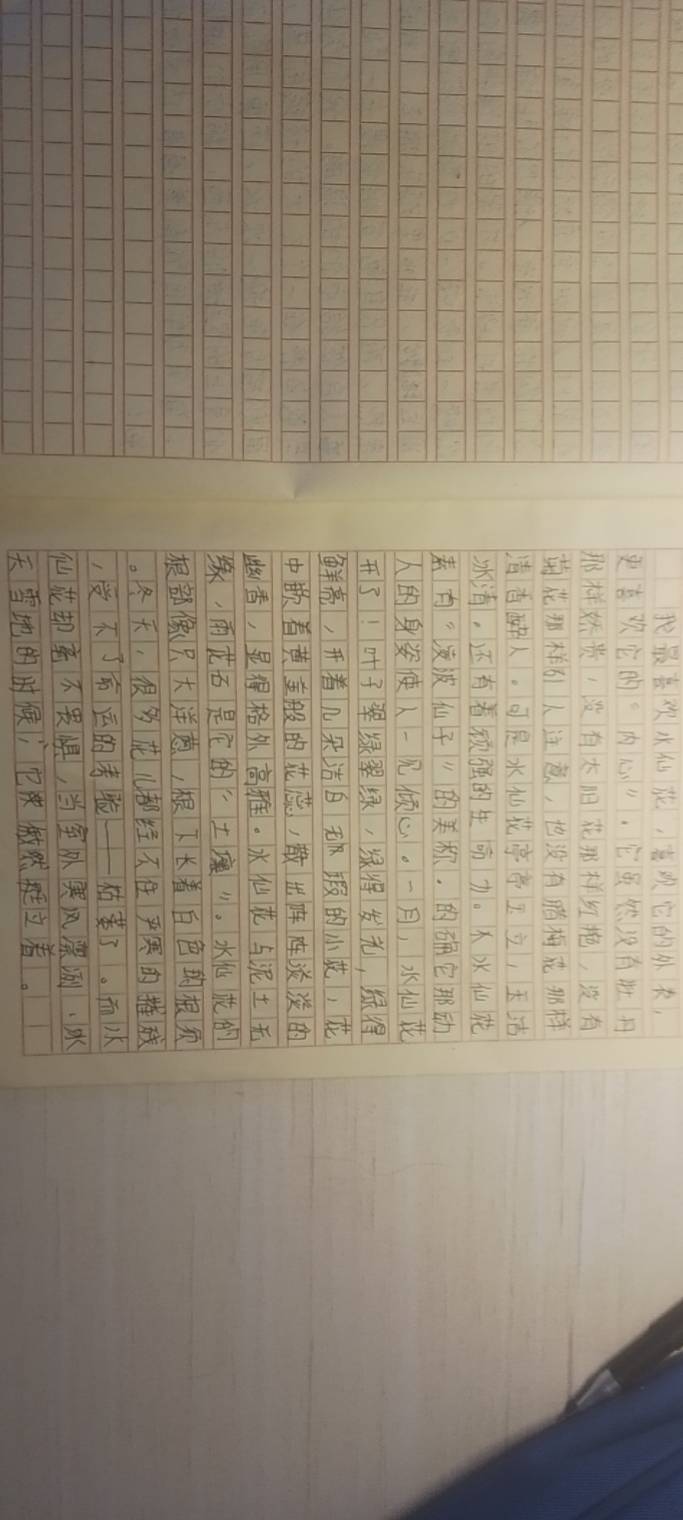 我最喜欢水仙花，喜欢它的外表，
更喜欢它的“内心”。它虽然没有牡丹
那样娇贵，没有太阳花那样红艳，没有
菊花那样引人注意，也没有腊梅花那样
清香醉人。可是水仙花亭亭玉立，玉洁
冰清。还有着顽强的生命力。水仙花
素有“凌波仙子”的美称。的确它那动
人的身姿使人一见倾心。一月，水仙花
开了！叶子翠绿翠绿，绿得发光，绿得
鲜亮，开着几朵洁白无瑕的小花，花
中嵌着黄金般的花蕊，散出阵阵淡淡的
幽香，显得格外高雅。水仙花与泥土无
缘，雨花石是它的“土壤”。水仙花的
根部像只大洋葱，根下长着白色的根须
。冬天，很多花儿都经不住严寒的摧残
，受不了命运的考验——枯萎了。而水
仙花却毫不畏惧，当室外寒风凛冽、冰
天雪地的时候，它傲然挺立着。